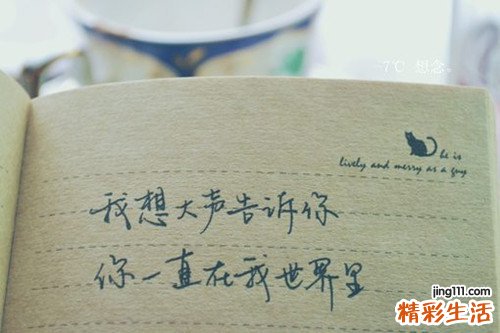 7℃ 想念。
he is
lively and merry as a guy
我想大声告诉你
你一直在我世界里
jing111.com
精彩生活